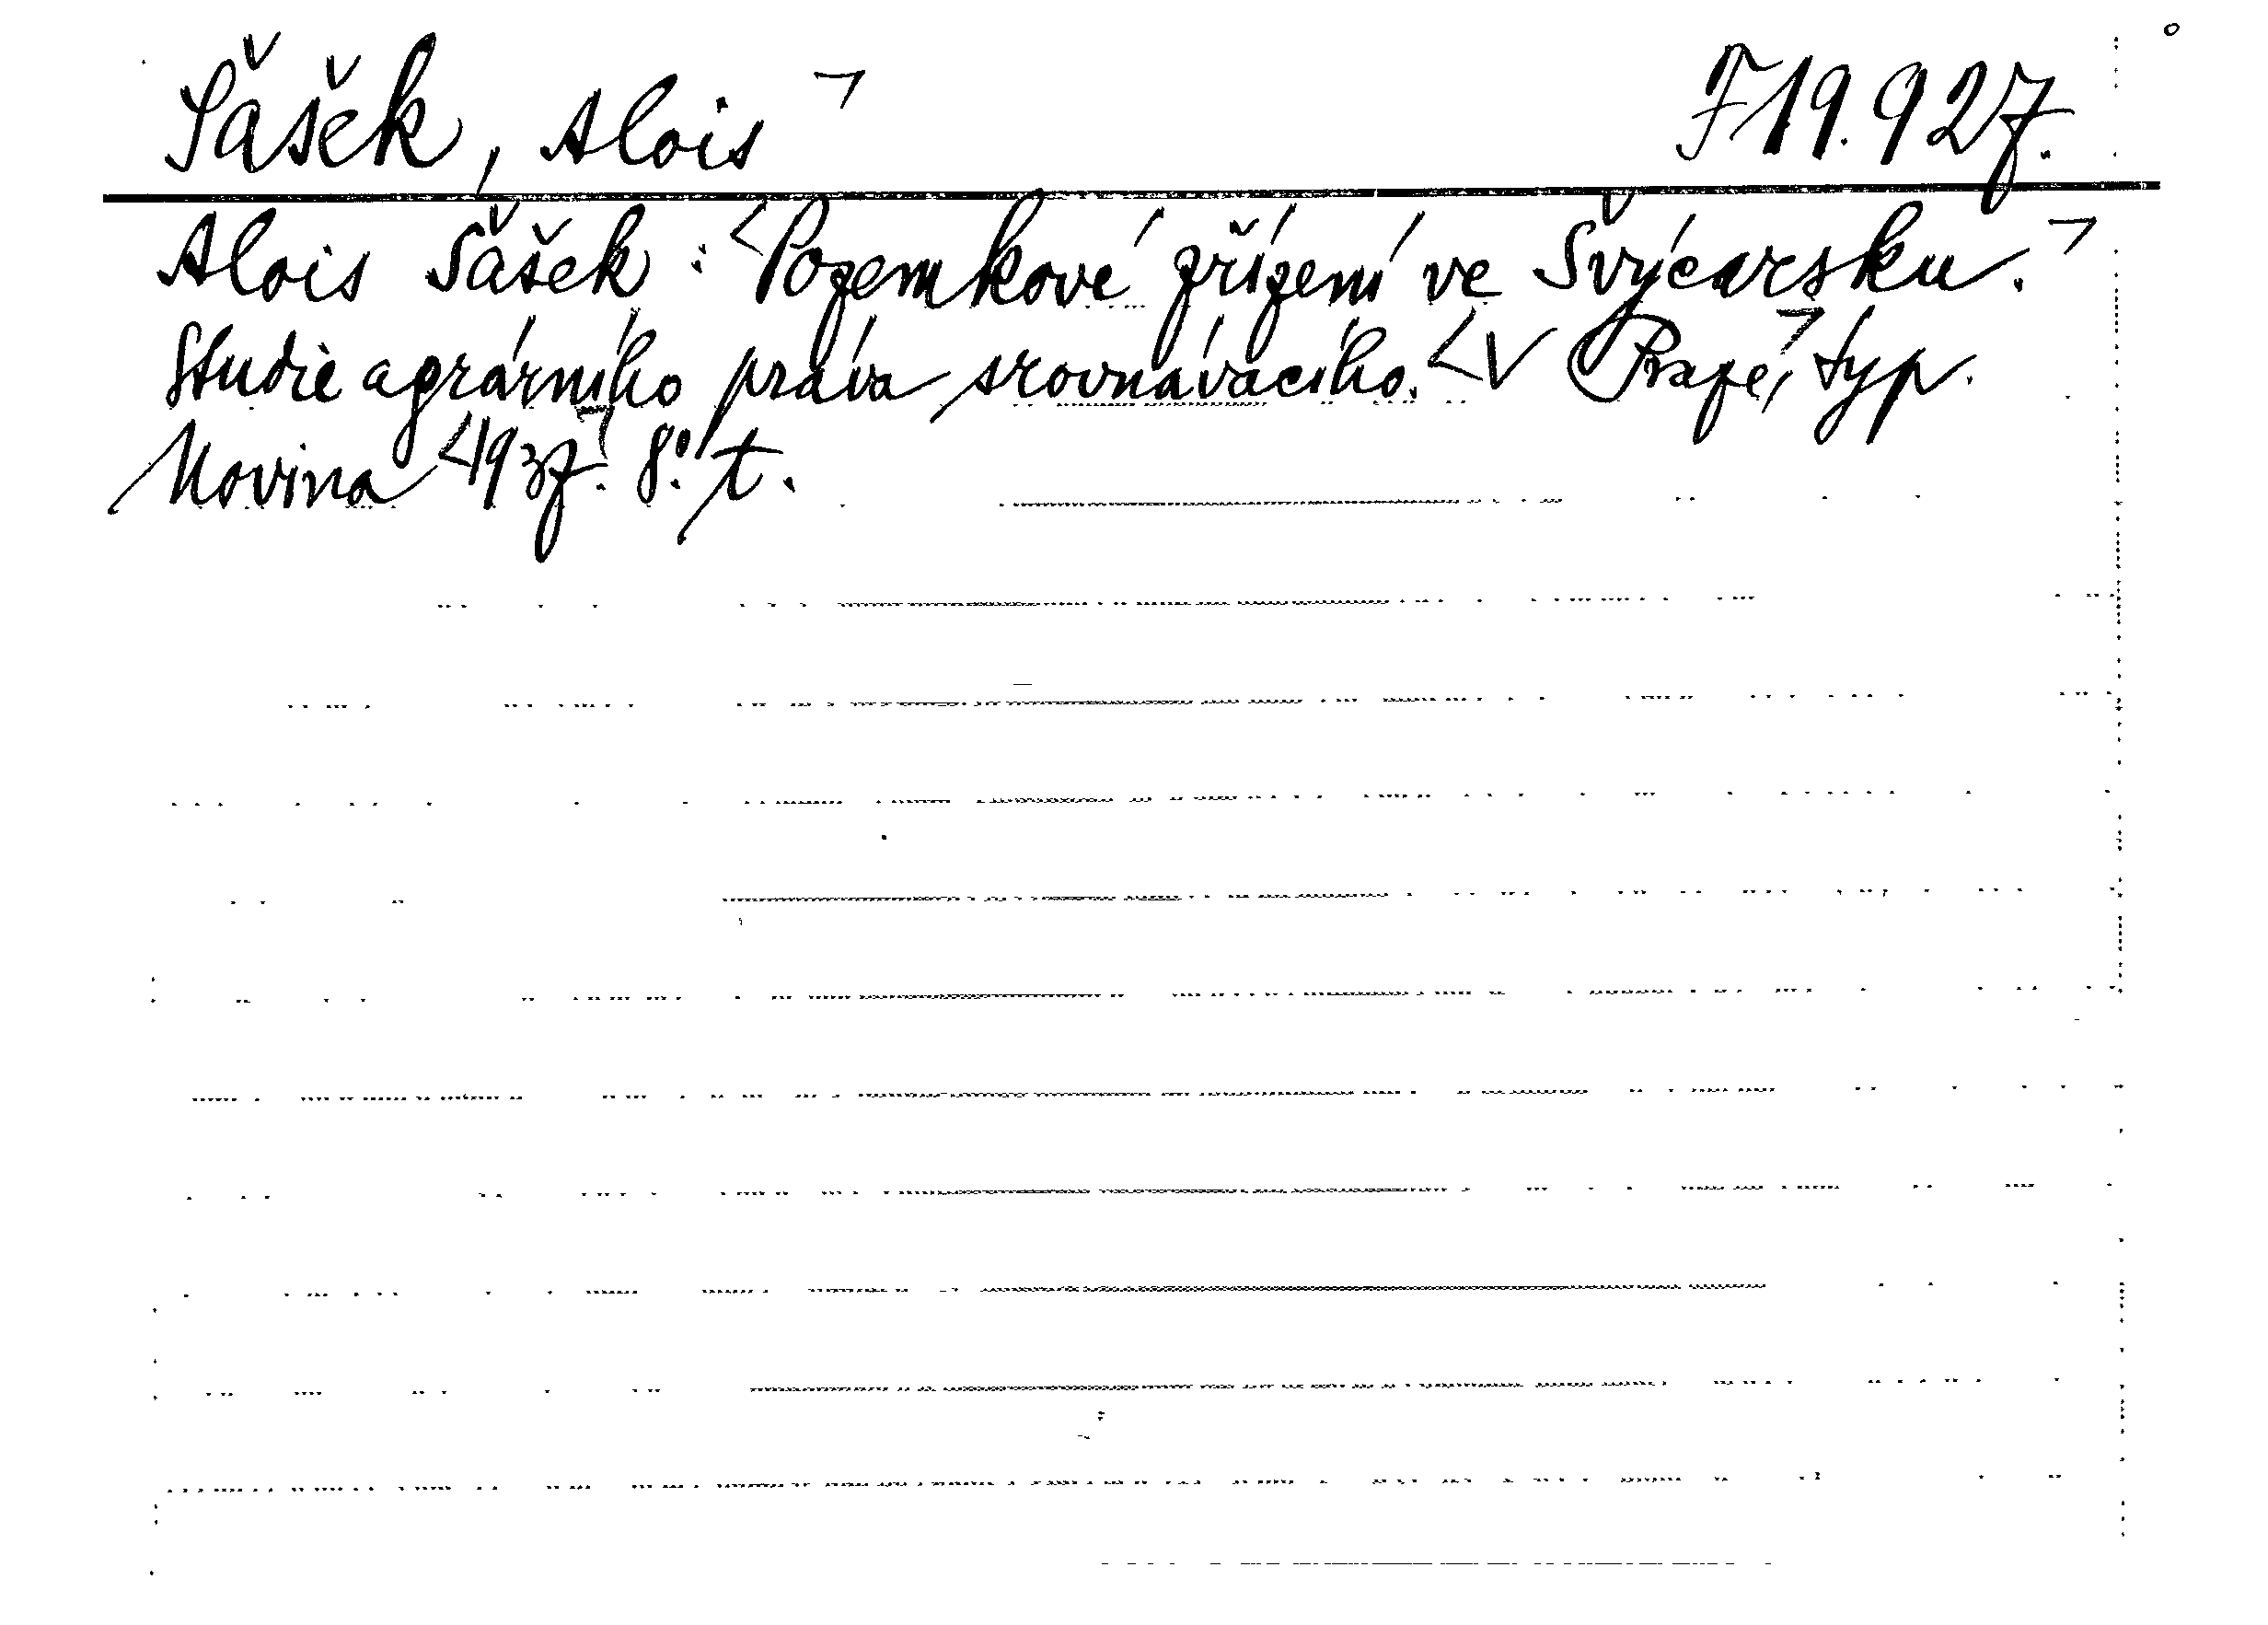 Šašek, Alois ⌝ F 19.927.
Alois Šašek: <Pozemkové zřízení ve Švýcarsku.⌝
Studie agrárního práva srovnávacího. <V Praze,⌝ typ.
Novina <1937.⌝ 8.° t.